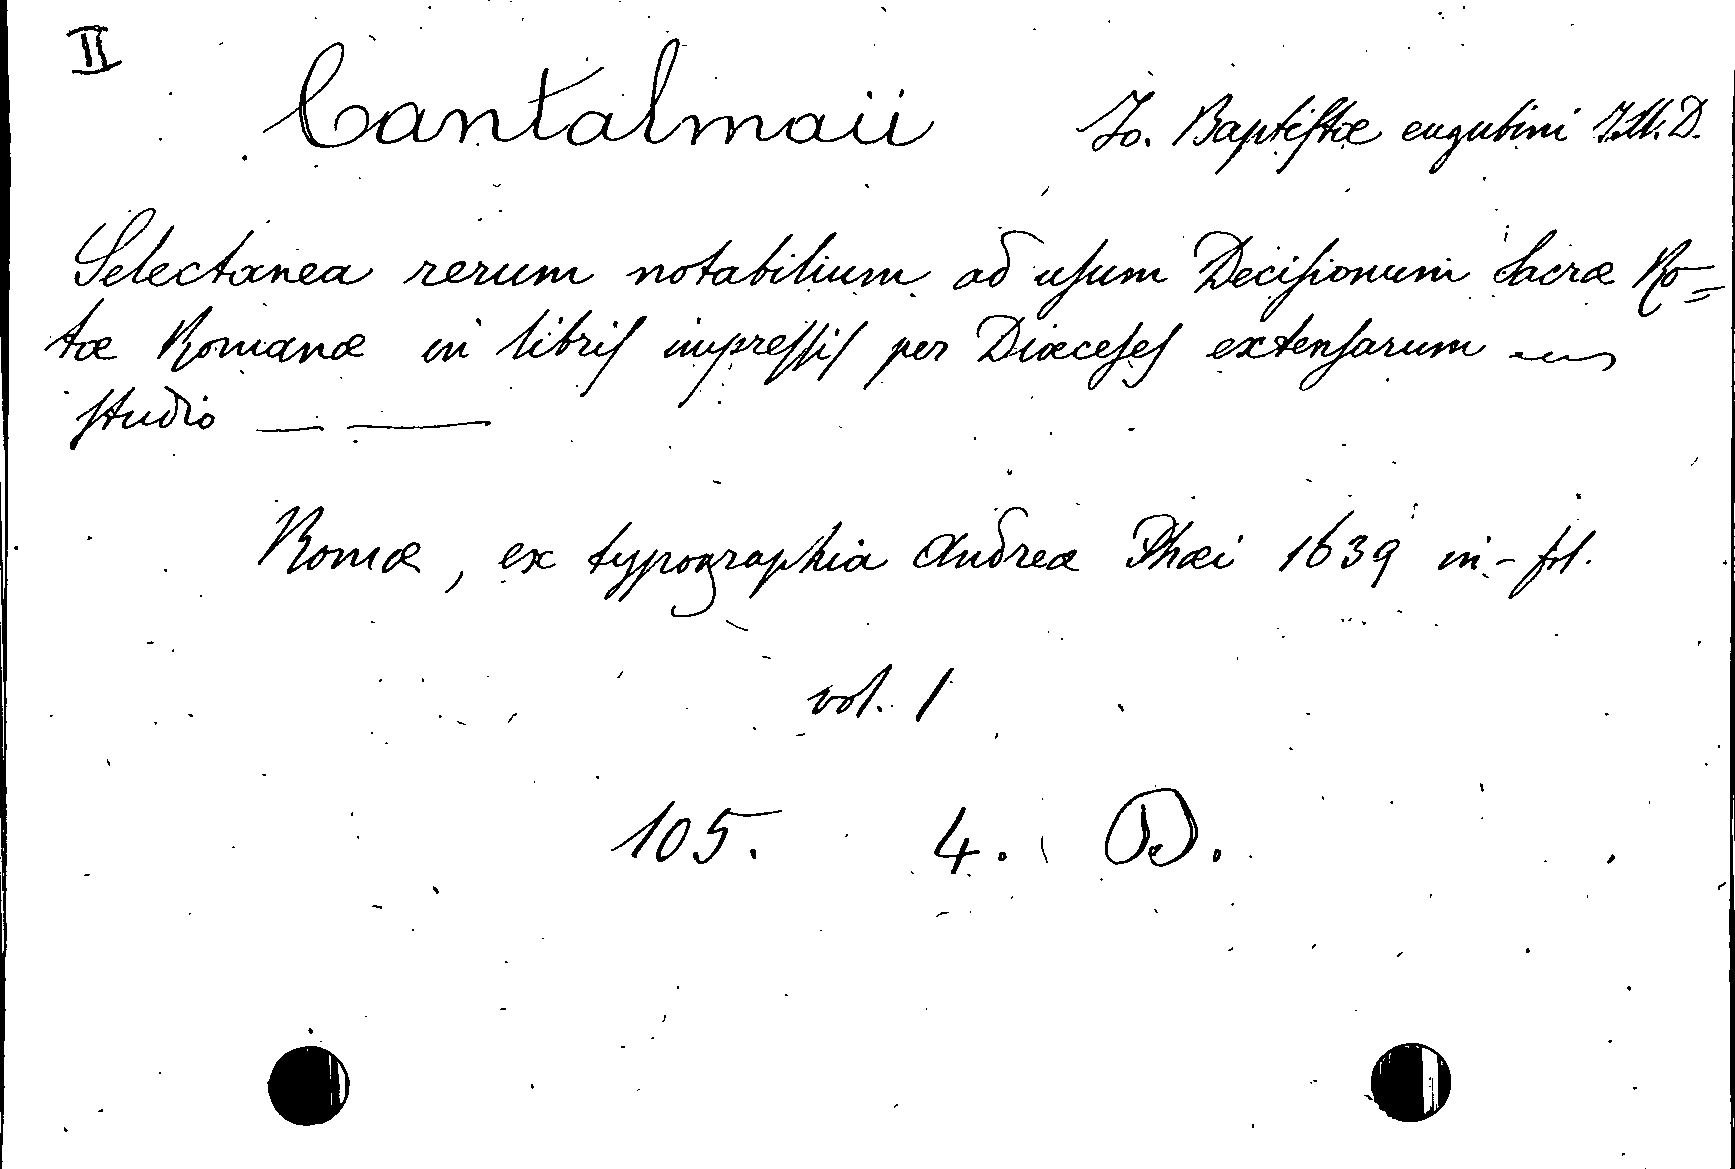 II
Cantalmaii Jo. Baptiſtæ eugubini J.U.D.
Selectanea rerum notabilium ad uſum Deciſionum Sacræ Ro=
tæ Romanæ in libriſ impreſſiſ per Diæceſeſ extenſarum
ſtudio — —
Romæ, ex typographia Andreæ Phæi 1639 in-fol.
vol. 1
105. 4. D.